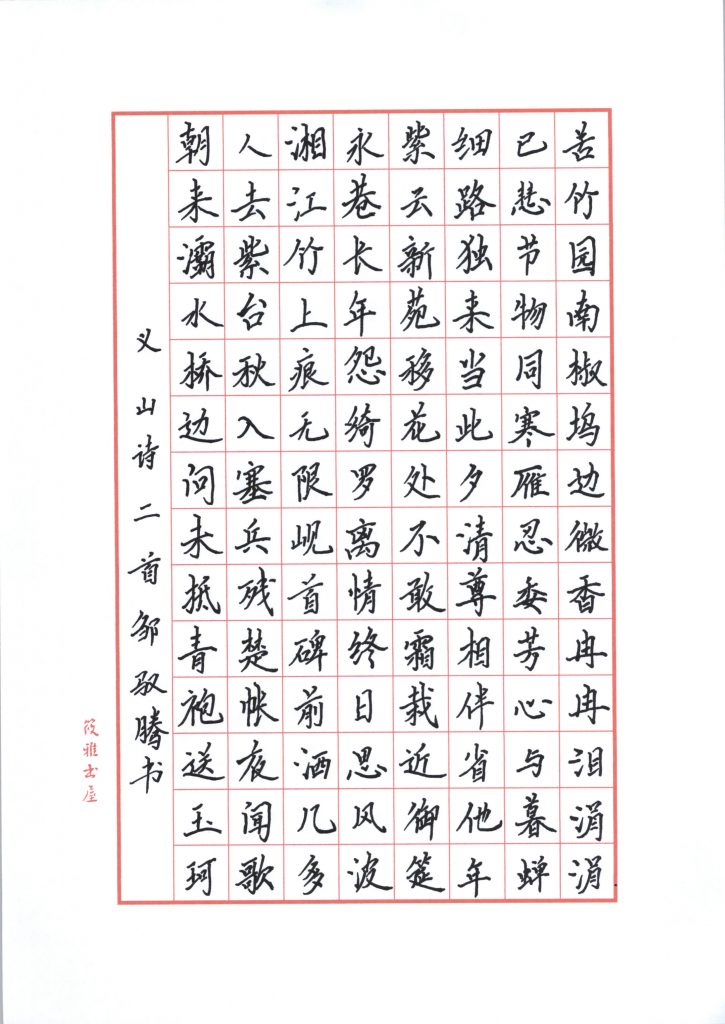 苦竹园南椒坞边微香冉冉泪涓涓
已悲节物同寒雁忍委芳心与暮蝉
细路独来当此夕清尊相伴省他年
紫云新苑移花处不敢霜栽近御筵
永巷长年怨绮罗离情终日思风波
湘江竹上痕无限岘首碑前洒几多
人去紫台秋入塞兵残楚帐夜闻歌
朝来灞水桥边问未抵青袍送玉珂
义山诗二首邹驭腾书
筱雅书屋